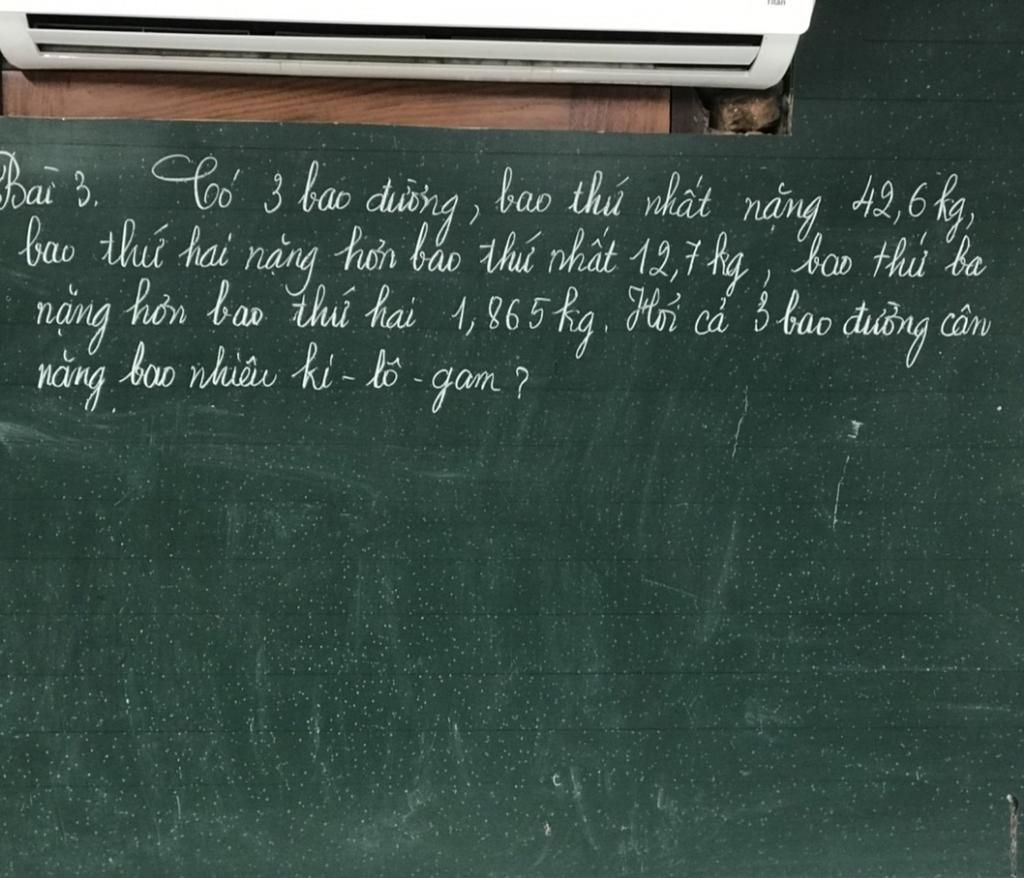 Titan
Bài 3. Có 3 bao đường, bao thứ nhất nặng 42,6 kg,
bao thứ hai nặng hơn bao thứ nhất 12,7 kg, bao thứ ba
nặng hơn bao thứ hai 1,865 kg. Hỏi cả 3 bao đường cân
nặng bao nhiêu ki-lô-gam?